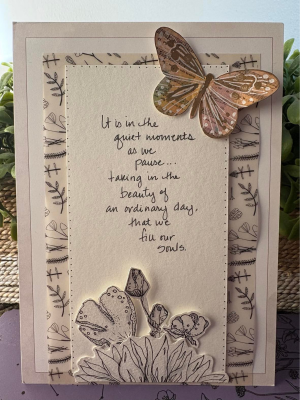 It is in the
quiet moments
as we
pause...
taking in the
beauty of
an ordinary day,
that we
fill our
souls.